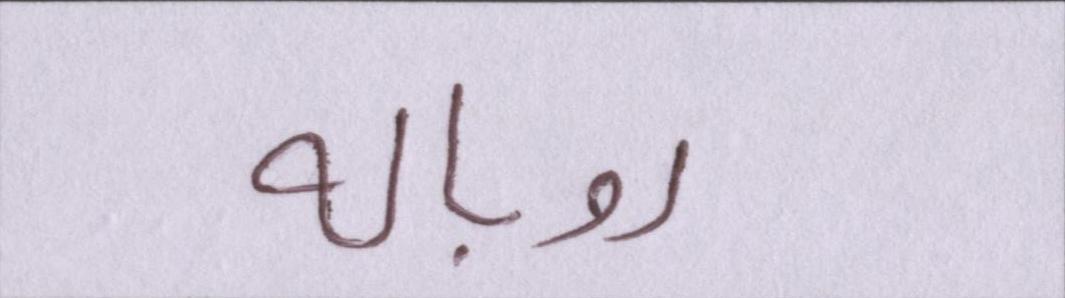 روباله